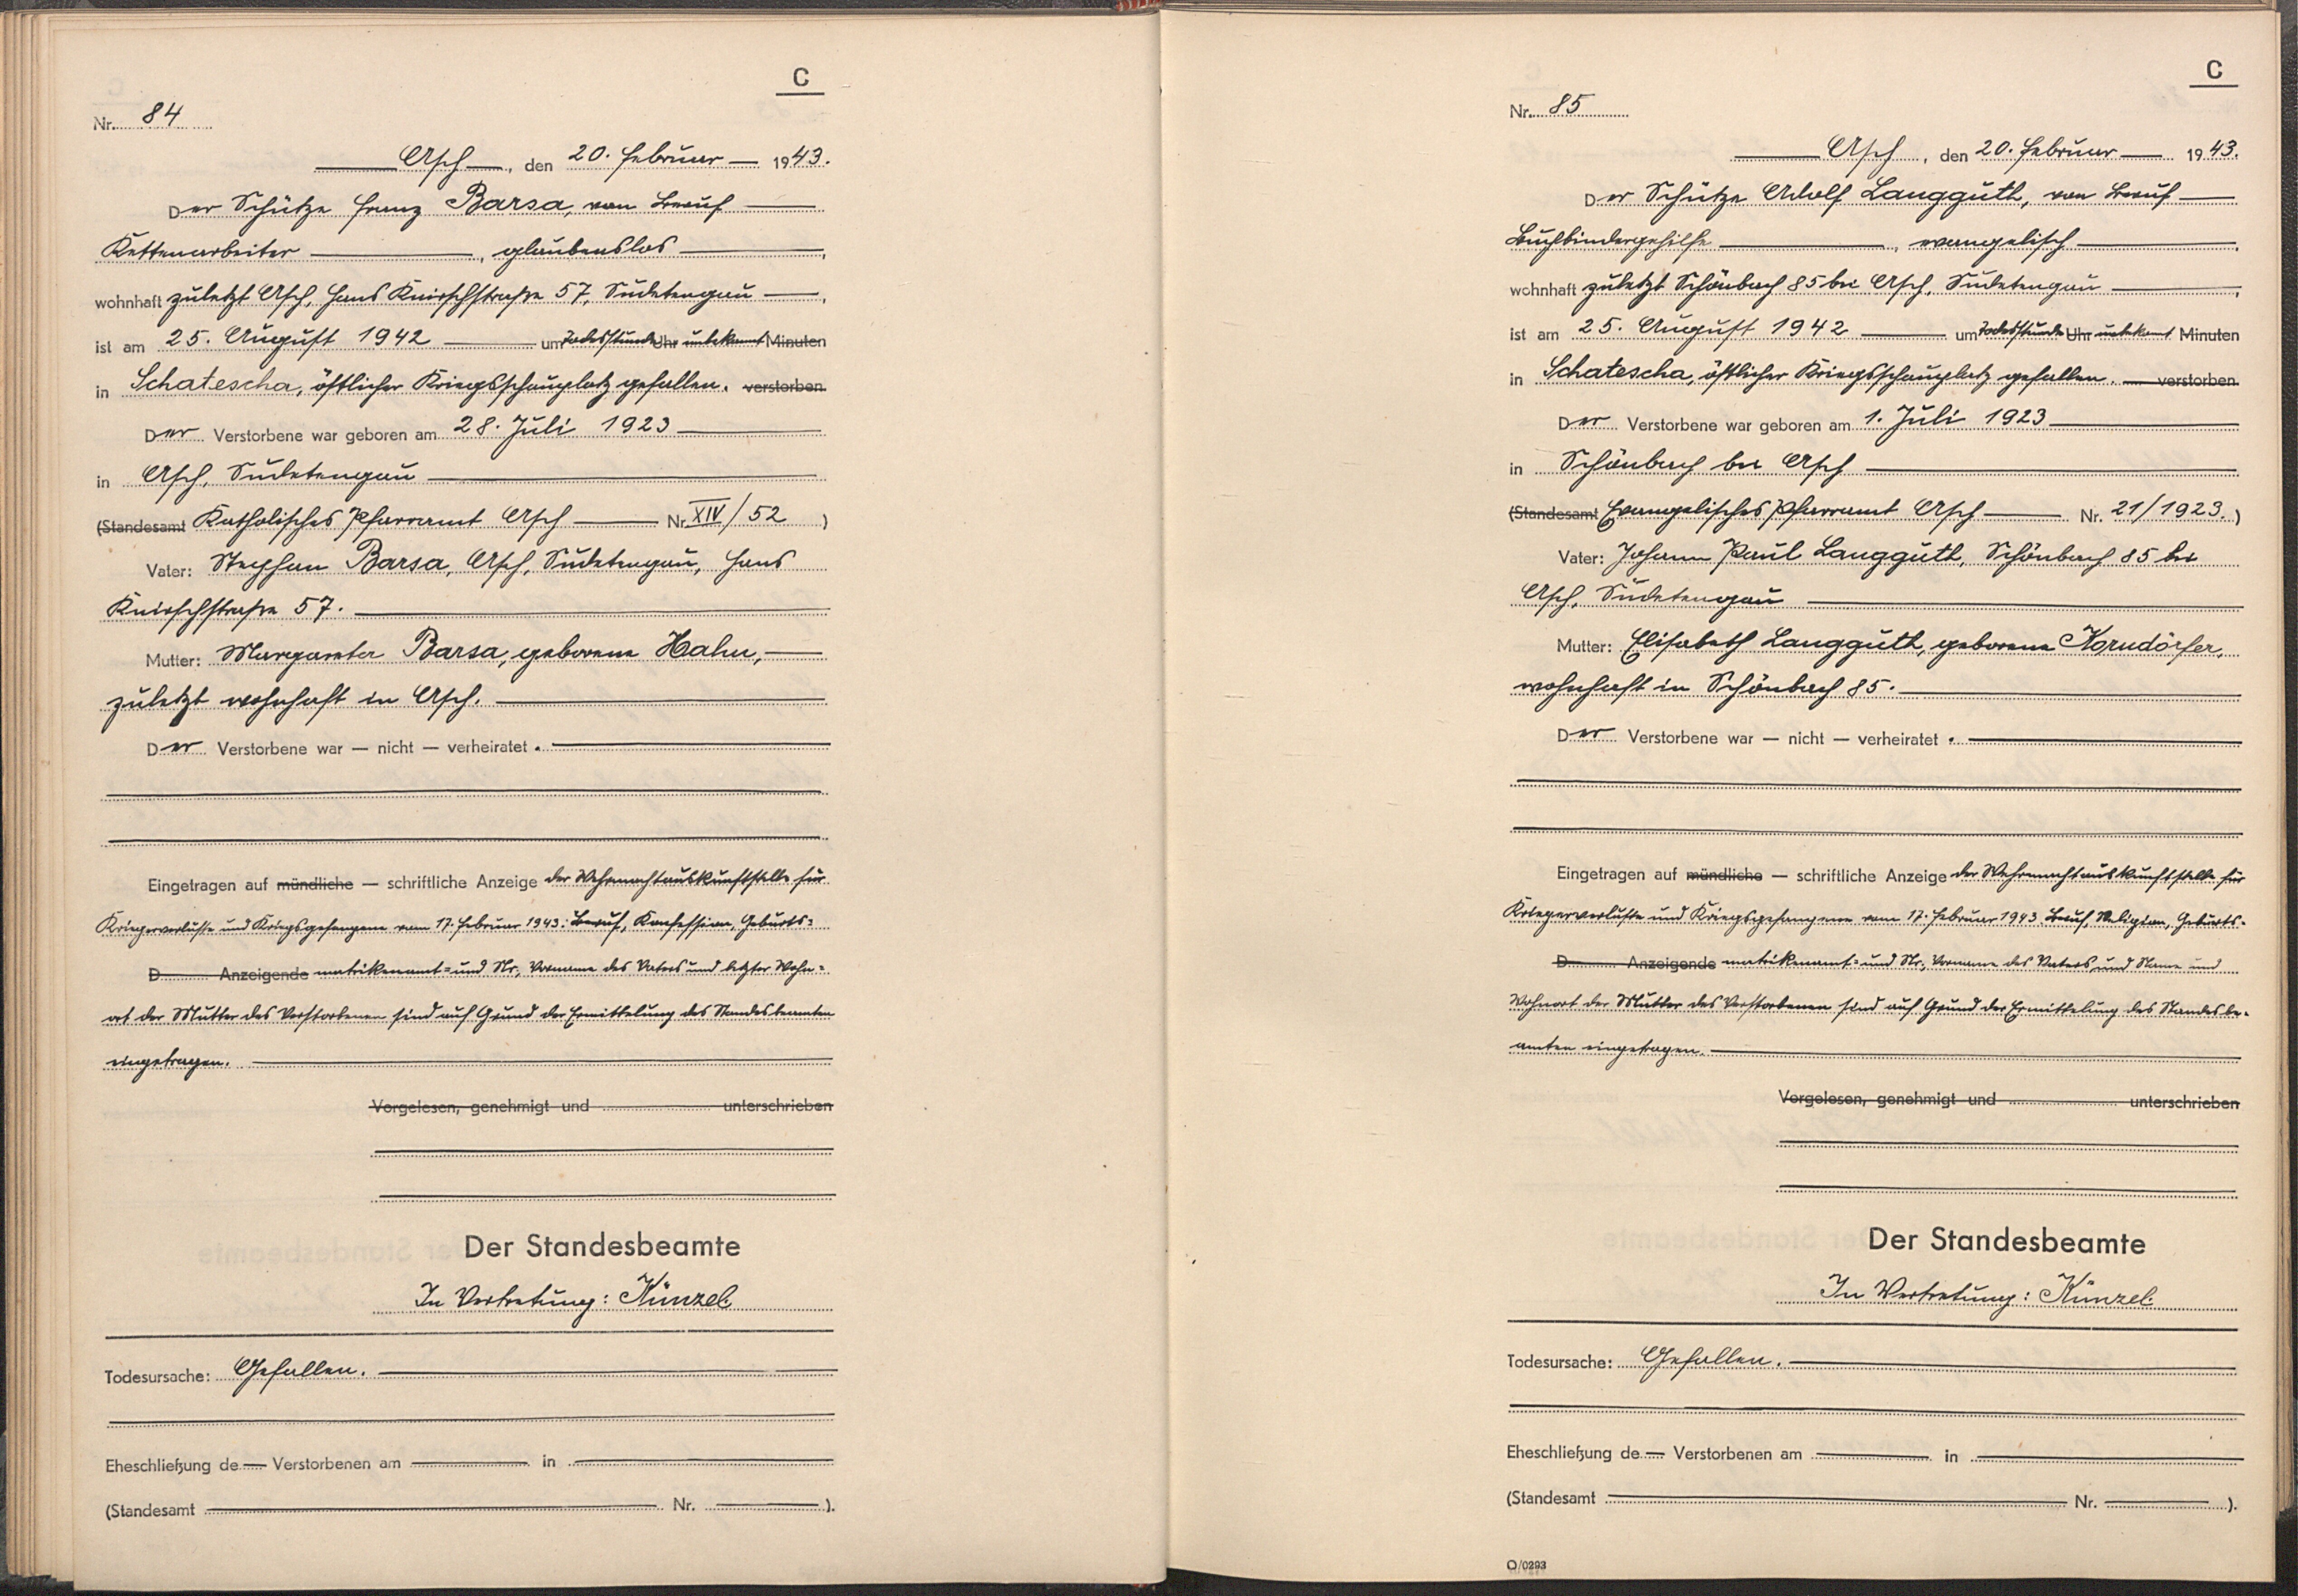 C
Nr. 84
Asch, den 20. Februar 1943.
Der Schütze Franz Barsa, von Beruf
Kettenarbeiter, glaubenslos,
wohnhaft zuletzt Asch, Hans Knirschstraße 57, Sudetengau,
ist am 25. August 1942 um Todesstunde Uhr unbekannt Minuten
in Schatescha, östlicher Kriegsschauplatz gefallen. verstorben.
Der Verstorbene war geboren am 28. Juli 1923
in Asch, Sudetengau
(Standesamt Katholisches Pfarramt Asch Nr. XIV/52)
Vater: Stephan Barsa, Asch, Sudetengau, Hans
Knirschstraße 57.
Mutter: Margareta Barsa, geborene Hahn,
zuletzt wohnhaft in Asch.
Der Verstorbene war — nicht — verheiratet.
Eingetragen auf mündliche — schriftliche Anzeige der Wehrmachtauskunftstelle für
Kriegerverluste und Kriegsgefangene vom 17. Februar 1943: Beruf, Konfession, Geburts=
D Anzeigende matrikenamt= und Nr., Vorname des Vaters und letzter Wohn=
ort der Mutter des Verstorbenen sind auf Grund der Ermittelung des Standesbeamten
eingetragen.
Vorgelesen, genehmigt und unterschrieben
Der Standesbeamte
In Vertretung: Künzel
Todesursache: Gefallen.
Eheschließung de Verstorbenen am in
(Standesamt Nr. ).
C
Nr. 85
Asch, den 20. Februar 1943.
Der Schütze Adolf Langguth, von Beruf
Buchbindergehilfe, evangelisch,
wohnhaft zuletzt Schönbach 85 bei Asch, Sudetengau,
ist am 25. August 1942 um Todesstunde Uhr unbekannt Minuten
in Schatescha, östlicher Kriegsschauplatz gefallen. verstorben.
Der Verstorbene war geboren am 1. Juli 1923
in Schönbach bei Asch
(Standesamt Evangelisches Pfarramt Asch Nr. 21/1923.)
Vater: Johann Paul Langguth, Schönbach 85 bei
Asch, Sudetengau
Mutter: Elisabeth Langguth, geborene Korndörfer,
wohnhaft in Schönbach 85.
Der Verstorbene war — nicht — verheiratet.
Eingetragen auf mündliche — schriftliche Anzeige der Wehrmachtauskunftstelle für
Kriegerverluste und Kriegsgefangene vom 17. Februar 1943. Beruf, Religion, Geburts=
D Anzeigende matrikenamt= und Nr., Vorname des Vaters und Name und
Wohnort der Mutter des Verstorbenen sind auf Grund der Ermittelung des Standesbe=
amten eingetragen.
Vorgelesen, genehmigt und unterschrieben
Der Standesbeamte
In Vertretung: Künzel
Todesursache: Gefallen.
Eheschließung de Verstorbenen am in
(Standesamt Nr. ).
O/0293